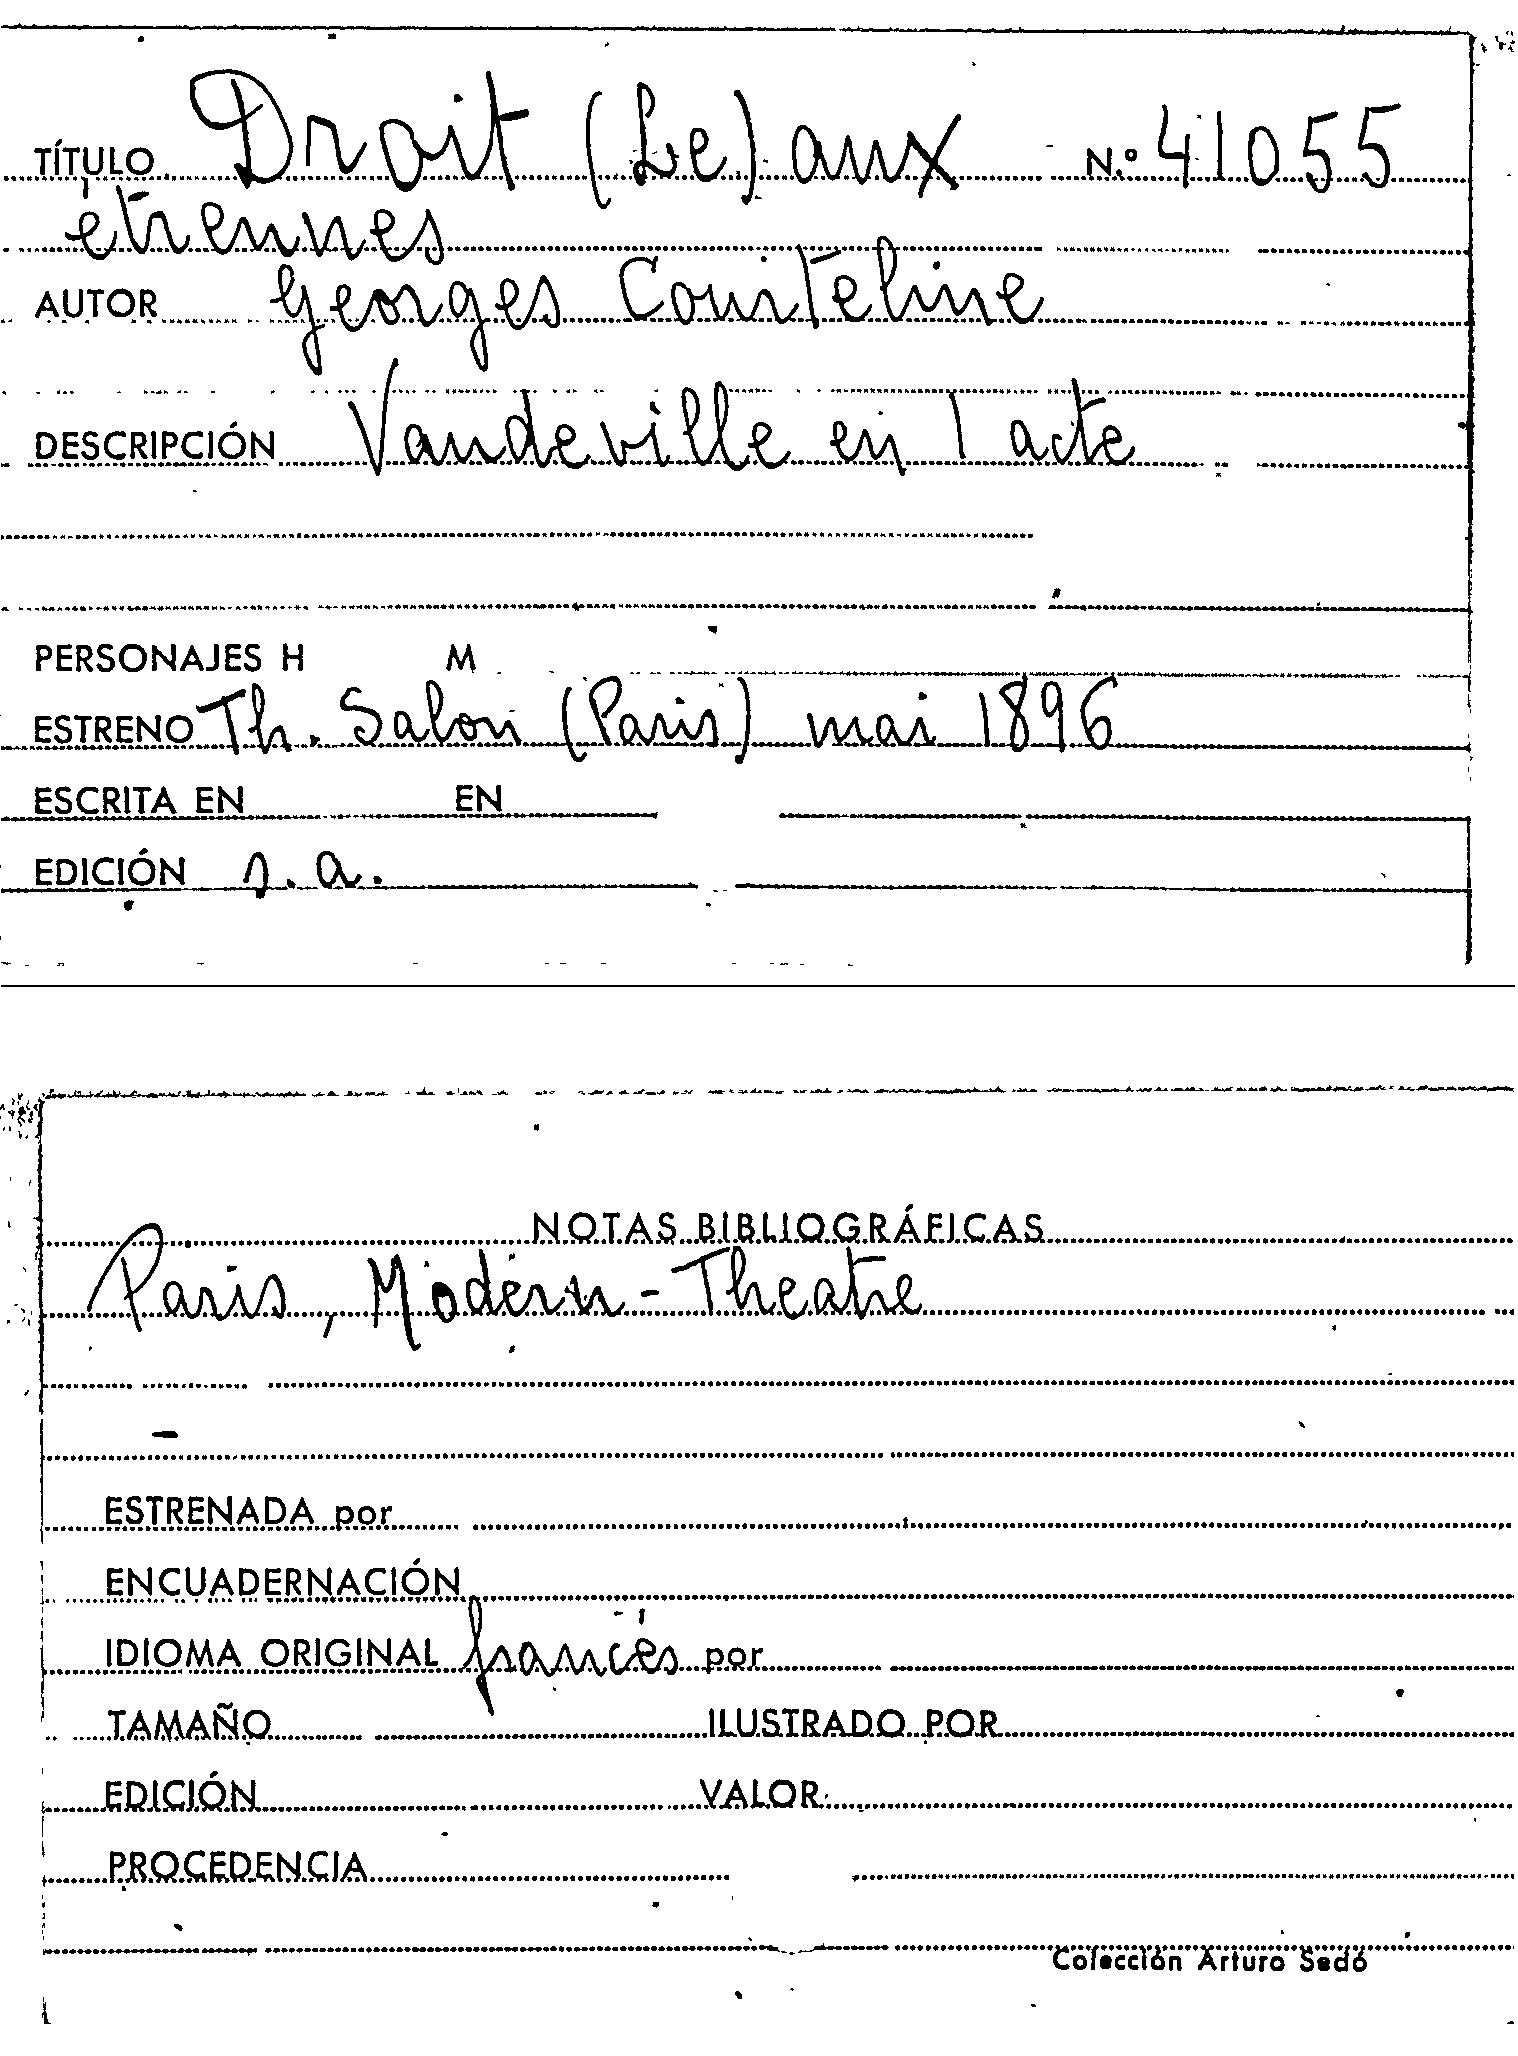 TÍTULO Droit (Le) aux N.º 41055
étrennes
AUTOR Georges Courteline
DESCRIPCIÓN Vaudeville en 1 acte
PERSONAJES H M
ESTRENO Th. Salon (Paris) mai 1896
ESCRITA EN EN
EDICIÓN s.a.
NOTAS BIBLIOGRÁFICAS
Paris, Modern-Theatre
ESTRENADA por
ENCUADERNACIÓN
IDIOMA ORIGINAL francés por
TAMAÑO ILUSTRADO POR
EDICIÓN VALOR
PROCEDENCIA
Colección Arturo Sedó